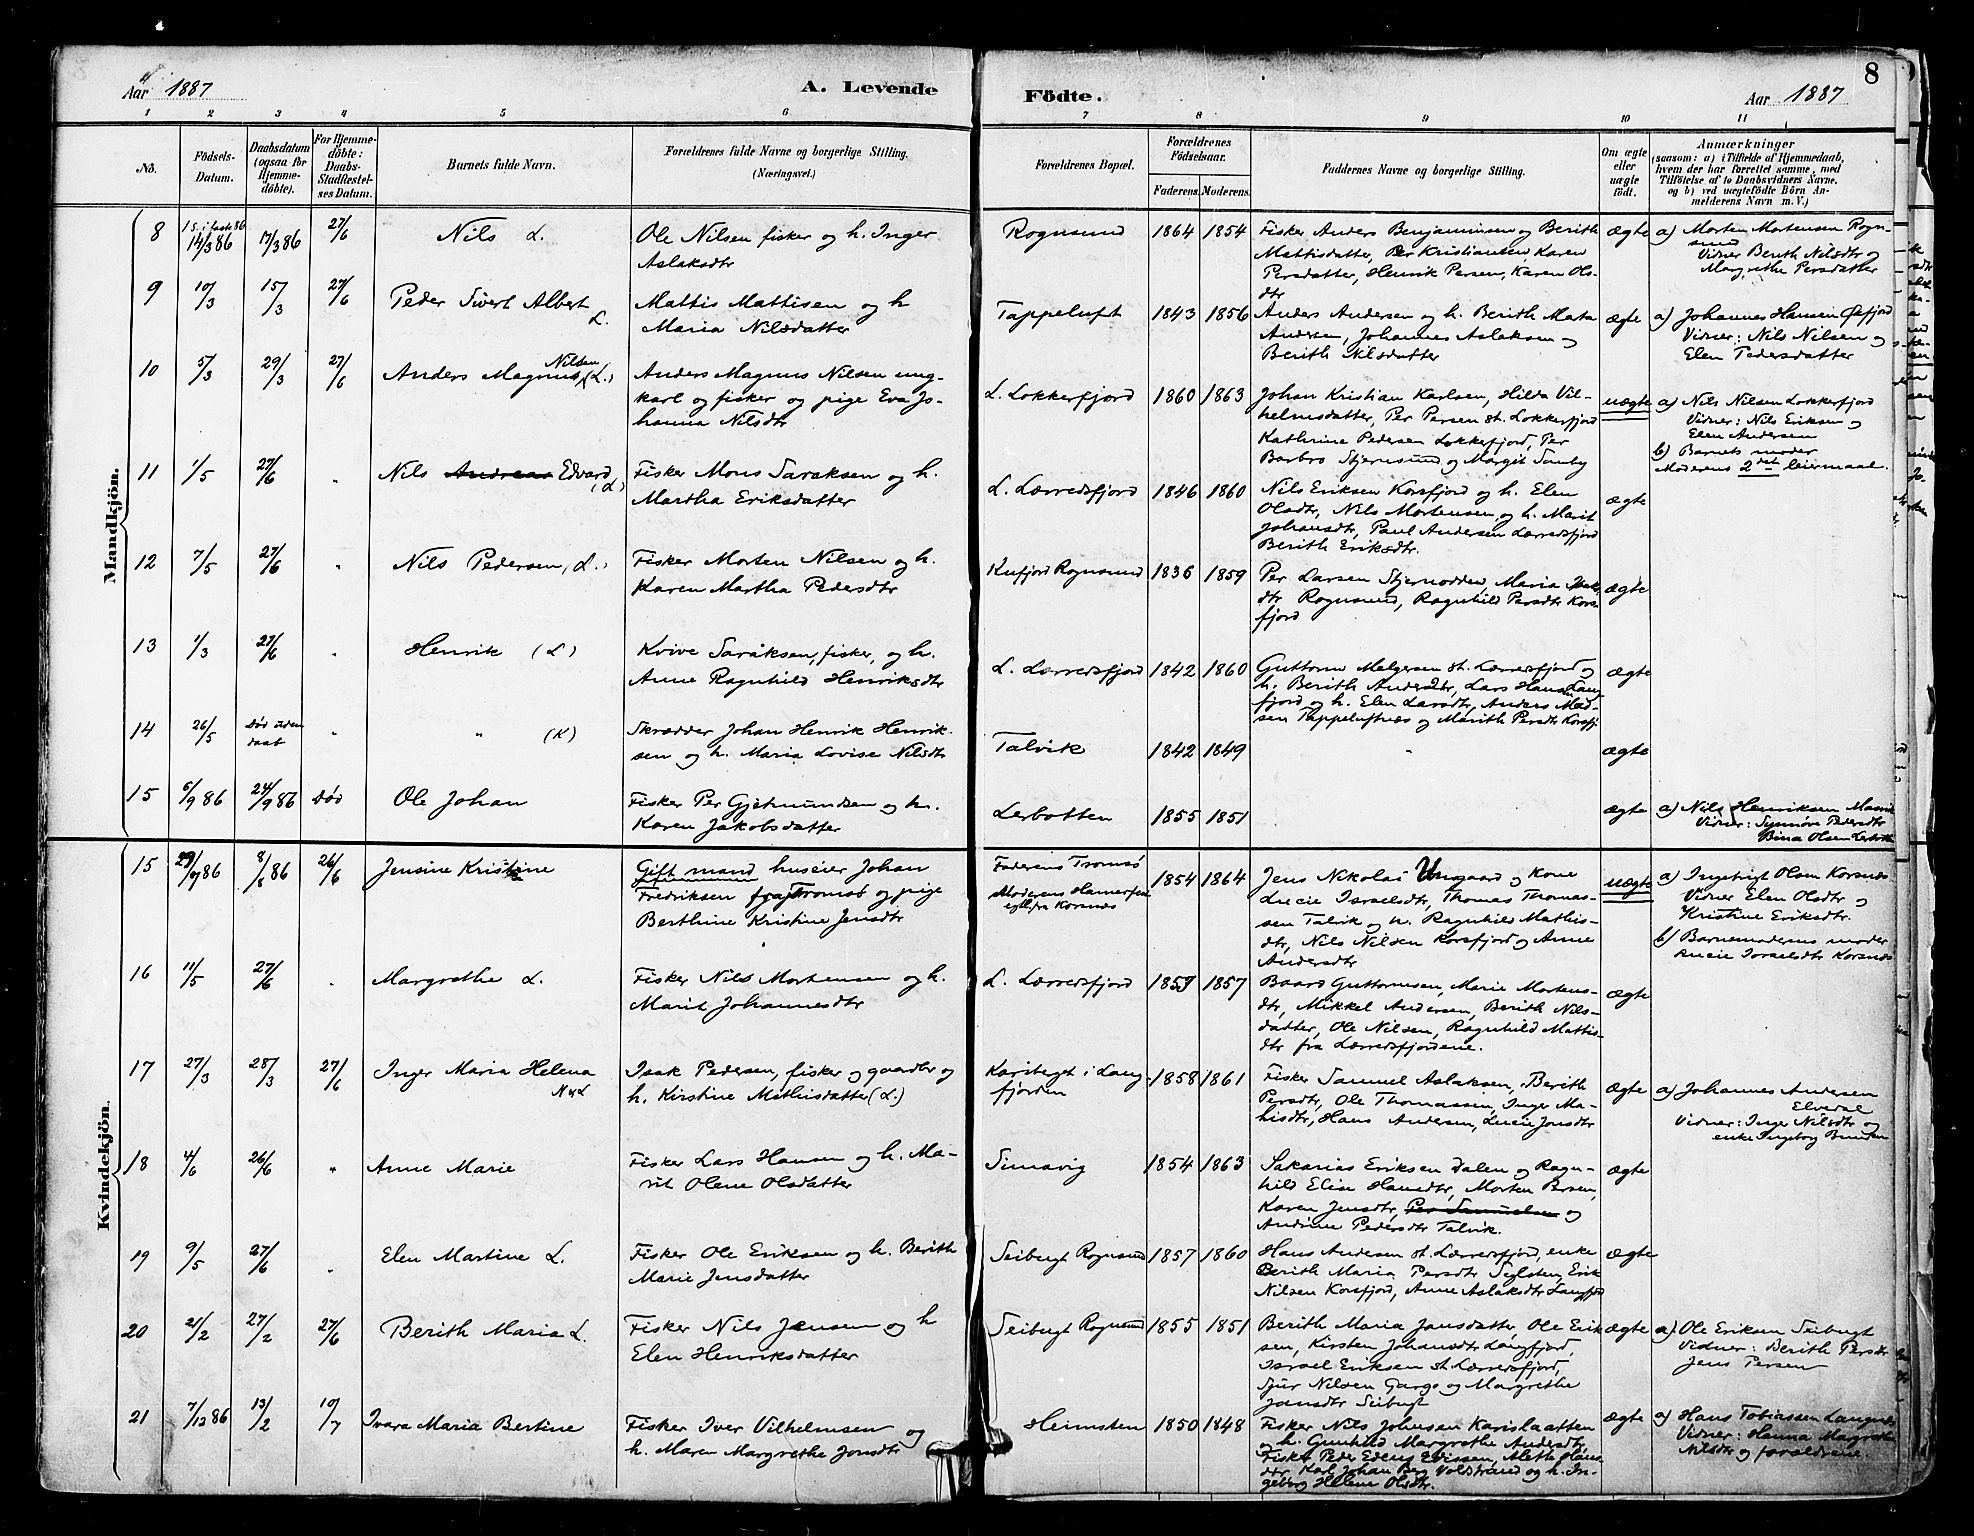 Aar 1887
A. Levende
Födte.
Aar 1887
8
1 2 3 4 5 6 7 8 9 10 11
No.
Födsels-
Datum.
Daabsdatum
(ogsaa för
Hjemme-
döbte).
For Hjemme-
döbte:
Daabs-
Stadfæstel-
ses Datum.
Barnets fulde Navn.
Forældrenes fulde Navne og borgerlige Stilling.
(Næringsvei.)
Forældrenes Bopæl.
Forældrenes
Födselsaar.
Faderens. Moderens.
Faddernes Navne og borgerlige Stilling.
Om ægte
eller
uægte
födt.
Anmærkninger
(saasom: a) i Tilfælde af Hjemmedaab,
hvem der har forrettet samme, med
Tilföielse af to Daabsvidners Navne,
og b) ved uægtefödte Börn An-
melderens Navn m. V.)
Mandkjön.
8 14/3 86 17/3 86 27/6 Nils L.
Ole Nilsen fisker og h. Inger
Aslaksdtr
Rognsund 1864 1854
Fisker Anders Benjaminsen og Berith
Mattisdatter, Per Kristiansen, Karen
Persdatter, Henrik Persen, Karen Ols-
dtr
ægte
a) Morten Mortensen Rogn-
sund
Vidner Berith Nilsdtr og
Margrethe Persdatter
9 10/3 15/3 27/6 Peder Sivert Albert
L.
Mattis Mattisen og h
Maria Nilsdatter
Tappeluft 1843 1856
Anders Andersen og h. Berith Mata
Andersen, Johannes Aslaksen og
Berith Nilsdatter
ægte
a) Johannes Hansen
Vidner: Nils Nilsen og
Elen Pedersdatter
10 5/3 29/3 27/6 Anders Magnus Nilsen (L.)
Anders Magnus Nilsen ung-
karl og fisker og pige Eva Jo-
hanna Nilsdtr
L. Lokkerfjord 1860 1863
Johan Kristian Karlsen, Hilda Vil-
helmsdatter, Per Persen st. Lokkerfjord
Kathrine Pedersen Lokkerfjord, Per
Barbro Stjernsund og Margit
uægte
a) Nils Nilsen Lokkerfjord
Vidner: Nils Eriksen og
Elen Andersen
b) Barnets moder
Moderens 2det leiermaal.
11 1/5 27/6 " Nils Andreas Edvard
(L)
Fisker Mons Saraksen og h.
Martha Eriksdatter
L. Lærredsfjord 1846 1860
Nils Eriksen Korsfjord og h. Elen
Olsdtr, Nils Mortensen og h. Marit
Johansdtr, Paul Andersen Lærredsfjord
Berith Eriksdtr.
ægte
12 7/5 27/6 " Nils Pedersen (L.)
Fisker Morten Nilsen og h.
Karen Martha Pedersdtr
Kufjord Rognsund 1836 1859
Per Larsen Stjernodden, Maria
dtr Rognsund, Ragnhild Persdtr Kors-
fjord
ægte
13 1/3 27/6 " Henrik (L)
Kvive Saraksen, fisker, og h.
Anne Ragnhild Henriksdtr
L. Lærredsfjord 1842 1860
Guttorm Melgersen st. Lærredsfjord og
h. Berith Andersdtr, Lars Hansen Lang
fjord og h. Elen Larsdtr, Anders Mad-
sen Tappeluftnæs og Marith Persdtr Korsfj.
ægte
14 26/5 Död uden
daab " " (K)
Skrædder Johan Henrik Henrik-
sen og h. Maria Lovise Nilsdtr
Talvik 1842 1849 " ægte
15 6/9 86 24/9 86 Död Ole Johan
Fisker Per Gjetmundsen og h.
Karen Jakobsdatter
Lerbotten 1855 1851 ægte
a) Nils Henriksen
Vidner: Synnöve Pedersdtr
Bina Olsen
Kvindekjön.
15 29/7 86 8/8 86 26/6 Jensine Kristine
Gift mand huseier Johan
Fredriksen fra Tromsö og pige
Berthine Kristine Jensdtr
Faderens Tromsö
Moderens Hamerfest
Korsnæs
1854 1864
Jens Nikolai Ungaard og Kone
Lucie Israelsdtr, Thomas Thomas-
sen Talvik og h. Ragnhild Mathis-
dtr, Nils Nilsen Korsfjord og Anne
Andersdtr
uægte
a) Ingebrigt Olsen Korsnæs
Vidner Elen Olsdtr og
Kristine Eriksdtr.
b) Barnemoderens moder
Lucie Israelsdtr Korsnæs
16 11/5 27/6 " Margrethe L.
Fisker Nils Mortensen og h.
Marit Johannesdtr
L. Lærredsfjord 1859 1857
Baard Guttormsen, Marie Mortens-
dtr, Mikkel Andersen, Berith Nils-
datter, Ole Nilsen, Ragnhild Mattis-
dtr fra Lærredsfjordene.
ægte
17 27/3 28/3 27/6 Inger Maria Helena
N&L
Isak Pedersen, fisker og gaardbr og
h. Kirstine Mathisdatter (L.)
i Lang
fjorden
1858 1861
Fisker Samuel Aslaksen, Berith
Persdtr, Ole Thomassen, Inger Ma-
hisdtr, Hans Andersen, Lucie Jonsdtr
ægte
a) Johannes Andersen
Elvedal
Vidner: Inger Nilsdtr og
enke Ingeborg
18 4/6 26/6 " Anne Marie
Fisker Lars Hansen og h. Ma-
rit Olene Olsdatter
Simavig 1854 1863
Sakarias Eriksen Dalen og Ragn-
hild Elise Hansdtr, Morten Persen,
Karen Jensdtr, Per Samuelsen og
Andrine Pedersdtr Talvik.
ægte
19 9/5 27/6 " Elen Martine L.
Fisker Ole Eriksen og h. Berith
Marie Jensdatter
Seibugt Rognsund 1857 1860
Hans Andersen st. Lærredsfjord, enke
Berith Maria Persdtr, Erik
Nilsen Korsfjord, Anne Aslaksdtr Langfjord
ægte
20 21/2 27/2 27/6 Berith Maria L.
Fisker Nils Jensen og h
Elen Henriksdatter
Seibugt Rognsund 1855 1851
Berith Maria Jansdatter, Ole Erik
sen, Kirsten Johansdtr Langfjord,
Israel Eriksen st. Lærredsfjord,
Sjur Nilsen Gargo og Margrethe
Jansdtr Seibugt
ægte
a) Ole Eriksen Seibugt
Vidner: Berith Persdtr
Jens Persen
21 7/12 86 13/2 10/7 Ivara Maria Bertine
Fisker Iver Vilhelmsen og
h. Maren Margrethe Jonsdtr
Heimsten 1850 1848
Fisker Nils Johnsen Karislaatten
og h. Gunhild Margrethe Andersdtr,
Fisker Peder Edens Edissen, Aleth Hans
dtr, Karl Johan Berg Volstrand og h. In-
geborg Helene Olsdtr.
ægte
a) Hans Tobiassen Langnes
Vidner: Hanna Margrethe
Nilsdtr og forældrene.